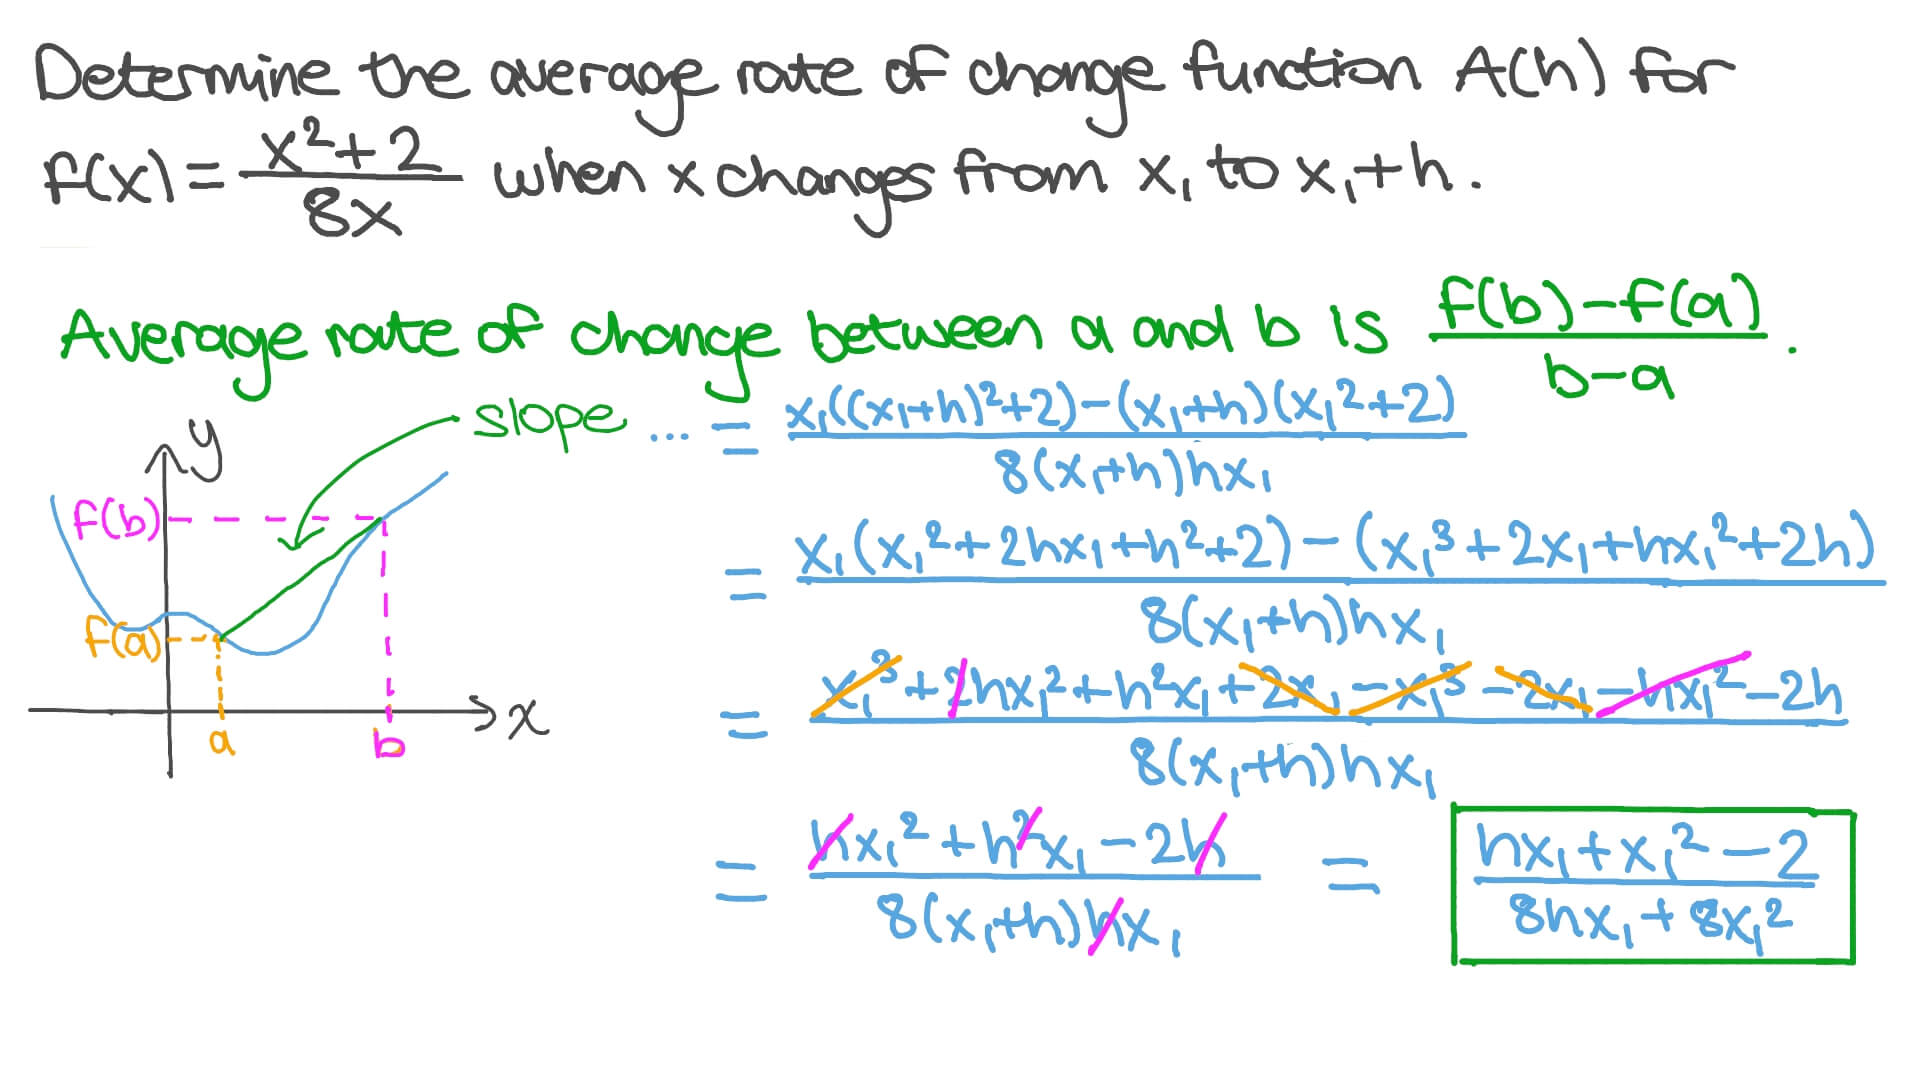 Determine the average rate of change function A(h) for
f(x) = (x²+2)/(8x) when x changes from x₁ to x₁+h.
Average rate of change between a and b is (f(b)-f(a))/(b-a).
slope
y
f(b)
f(a)
a
b
x
... = (x₁((x₁+h)²+2)-(x₁+h)(x₁²+2))/(8(x₁+h)hx₁)
= (x₁(x₁²+2hx₁+h²+2)-(x₁³+2x₁+hx₁²+2h))/(8(x₁+h)hx₁)
= (x₁³+2hx₁²+h²x₁+2x₁-x₁³-2x₁-hx₁²-2h)/(8(x₁+h)hx₁)
= (hx₁²+h²x₁-2h)/(8(x₁+h)hx₁) = (hx₁+x₁²-2)/(8hx₁+8x₁²)